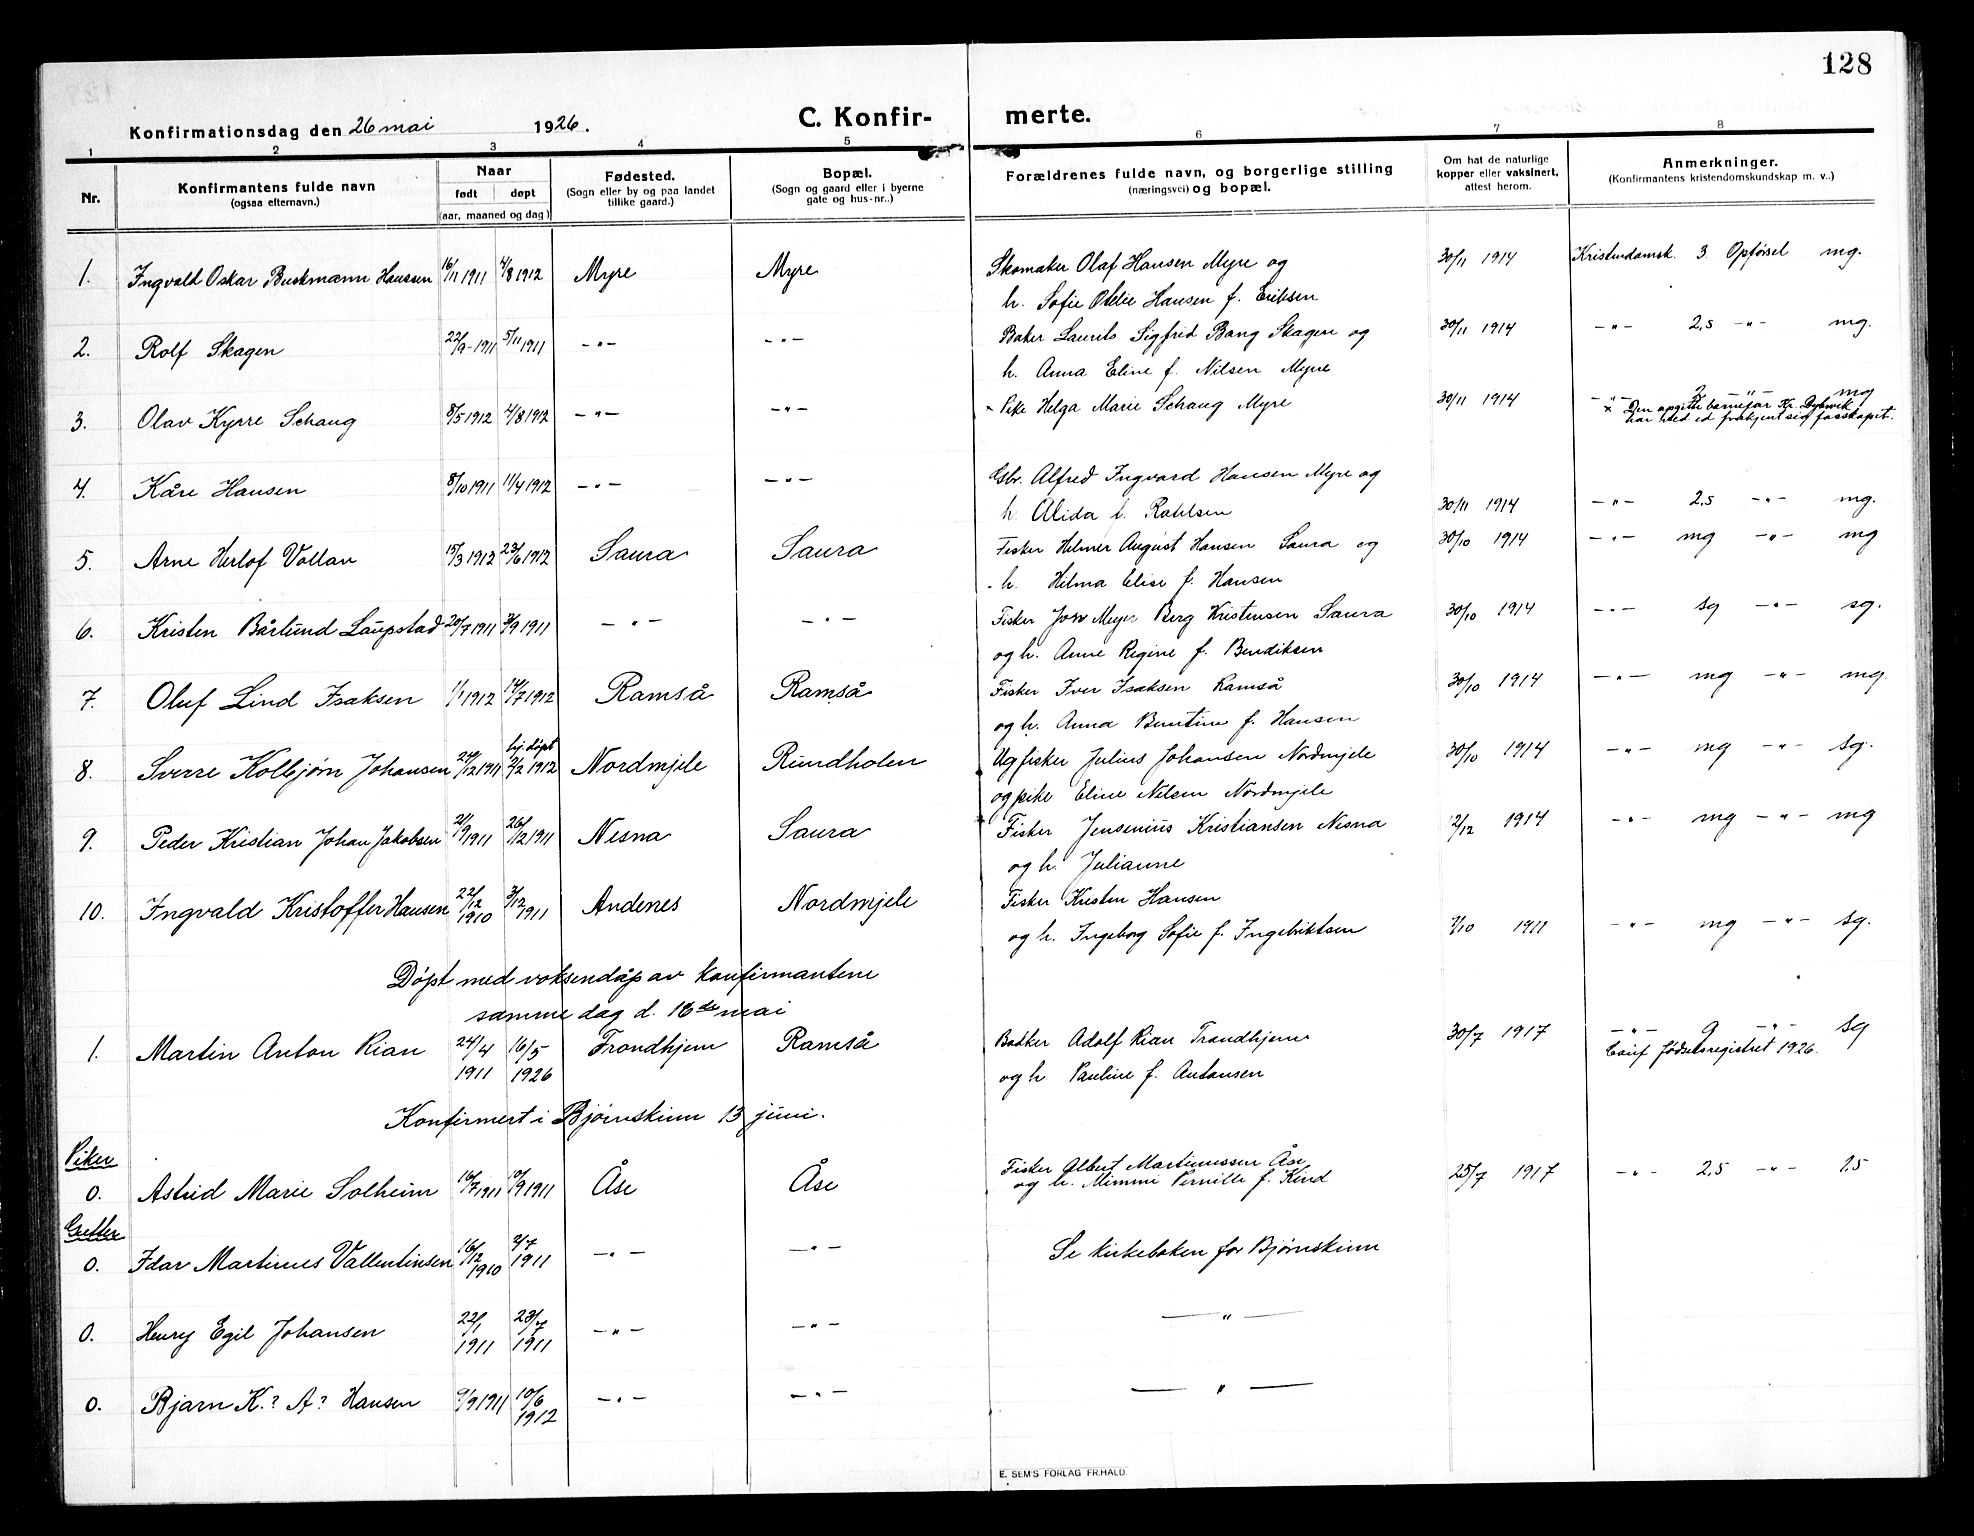 128
Konfirmationsdag den 26 mai 1926. C. Konfir- merte.
1 2 3 4 5 6 7 8
Nr. Konfirmantens fulde navn (ogsaa efternavn.) Naar født døpt (aar, maaned og dag) Fødested. (Sogn eller by og paa landet tillike gaard.) Bopæl. (Sogn og gaard eller i byerne gate og hus-nr..) Forældrenes fulde navn, og borgerlige stilling (næringsvei) og bopæl. Om hat de naturlige kopper eller vaksinert, attest herom. Anmerkninger. (Konfirmantens kristendomskundskap m. v..)
1. Ingvald Oskar Buckmann Hansen 16/11 1911 4/8 1912 Myre Myre Skomaker Olaf Hansen Myre og 30/11 1914 Kristendomsk. 3 Opførsel mg.
h. Sofie Otelie Hansen f. Eriksen
2. Rolf Skagen 22/9-1911 5/11 1911 -"- -"- Baker Laurits Sigfred Bang Skagen og 30/11 1914 -"- 2,5 -"- mg.
h. Anna Eline f. Nilsen Myre
3. Olav Kyrre Schaug 8/5 1912 4/8 1912 -"- -"- × Pike Helga Marie Schaug Myre 30/11 1914 -"- 2 -"- mg
× Den opgitte barnefar Kr. Dybwik
har med ed frakjent sig farskapet.
4. Kåre Hansen 8/10 1911 11/4 1912 -"- -"- Gbr. Alfred Ingvard Hansen Myre og
h. Alida f. Roklsen 30/11 1914 -"- 2,5 -"- mg.
5. Arne Herlof Vollan 15/3 1912 23/6 1912 Saura Saura Fisker Helmer August Hansen Saura og 30/10 1914 -"- mg -"- mg
h. Hilma Elise f. Hansen
6. Kristen Bårlund Laupstad 20/7 1911 3/9 1911 -"- -"- Fisker Jow Meyer Berg Kristensen Saura 30/10 1914 -"- sg -"- sg.
og h. Anne Regine f. Bendiksen
7. Oluf Lind Isaksen 1/1 1912 14/7 1912 Ramså Ramså Fisker Iver Isaksen Ramså 30/10 1914 -"- mg -"- mg.
og h. Anna Bentine f. Hansen
8. Sverre Kolbjørn Johansen 24/12 1911 hj. døpt 2/2 1912 Nordmjele Rundholen Ug fisker Julius Johansen Nordmjele 30/10 1914 -"- mg -"- sg.
og pike Eline Nilsen Nordmjele
9. Peder Kristian Johan Jakobsen 21/9 1911 26/12 1911 Nesna Saura Fisker Jensenius Kristiansen Nesna 12/12 1914 -"- mg -"- mg
og h. Julianne
10. Ingvald Kristoffer Hansen 22/12 1910 3/12 1911 Andenes Nordmjele Fisker Kristen Hansen
og h. Ingeborg Sofie f. Ingebriktsen 7/10 1911 -"- mg -"- sg.
Døpt med voksendåp av konfirmantene
samme dag d. 16de mai
1. Martin Anton Rian 24/4 1911 16/5 1926 Trondhjem Ramså Bødker Adolf Rian Trondhjem 30/7 1917 -"- 2 -"- sg
og h. Pauline f. Antonsen Conf fødselsregistret 1926.
Konfirmert i Bjørnskinn 13 juni.
Piker
0. Astrid Marie Solheim 16/7 1911 10/9 1911 Åse Åse Fisker Albert Martinussen Åse 25/7 1917 -"- 2,5 -"- 1,5
og h. Mimmi Pernille f. Kind
Gutter
0. Idar Martinus Vallentinsen 16/12 1910 2/7 1911 -"- -"- Se kirkeboken for Bjørnskinn
0. Henry Egil Johansen 22/1 1911 23/7 1911 -"- -"- -"-
0. Bjarn K.? A? Hansen 9/9 1911 10/6 1912 -"- -"- -"-
E. SEM'S FORLAG FR.HALD.